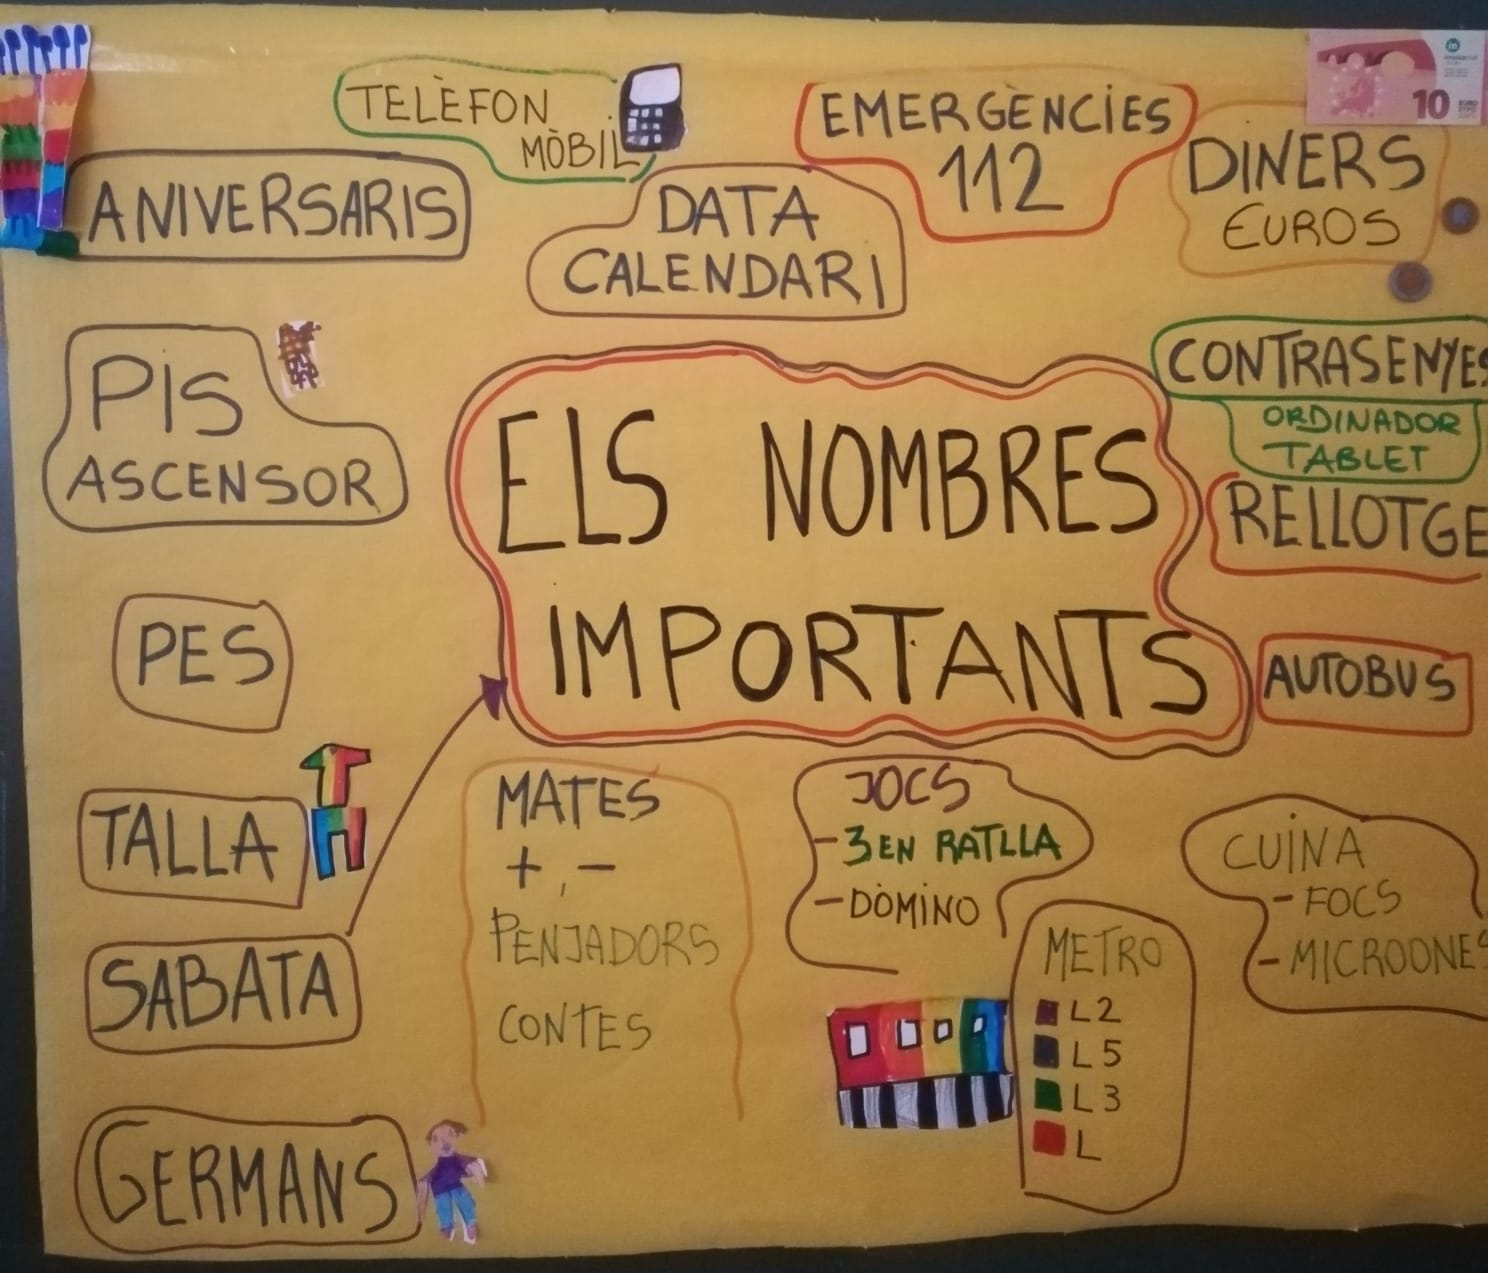 TELÈFON
MÒBIL
EMERGÈNCIES
112
10 EURO
DINERS
EUROS
ANIVERSARIS
DATA
CALENDARI
PIS
ASCENSOR
CONTRASENYES
ORDINADOR
TABLET
RELLOTGE
ELS NOMBRES
IMPORTANTS
PES
AUTOBUS
TALLA
MATES
+, -
PENJADORS
CONTES
JOCS
- 3 EN RATLLA
- DÒMINO
CUINA
- FOCS
- MICROONES
SABATA
METRO
L2
L5
L3
L
GERMANS